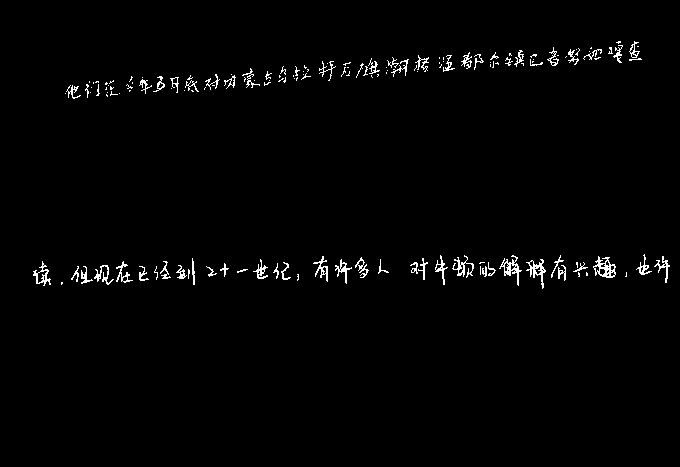 他们在今年5月底对内蒙古乌拉特后旗潮格温都尔镇巴音努如嘎查
读,但现在已经到二十一世纪,有许多人 对牛顿的解释有兴趣,也许